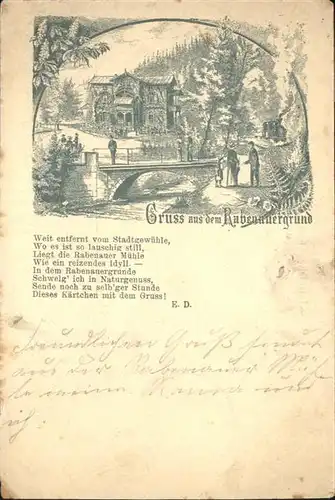 Gruss aus dem Rabenauergrund
Weit entfernt vom Stadtgewühle,
Wo es ist so lauschig still,
Liegt die Rabenauer Mühle
Wie ein reizendes Idyll. —
In dem Rabenauergrunde
Schwelg' ich in Naturgenuss,
Sende noch zu selb'ger Stunde
Dieses Kärtchen mit dem Gruss!
E. D.
Freundlichen Gruß sendet
aus der Rabenauer Müh-
le meine und
ich.